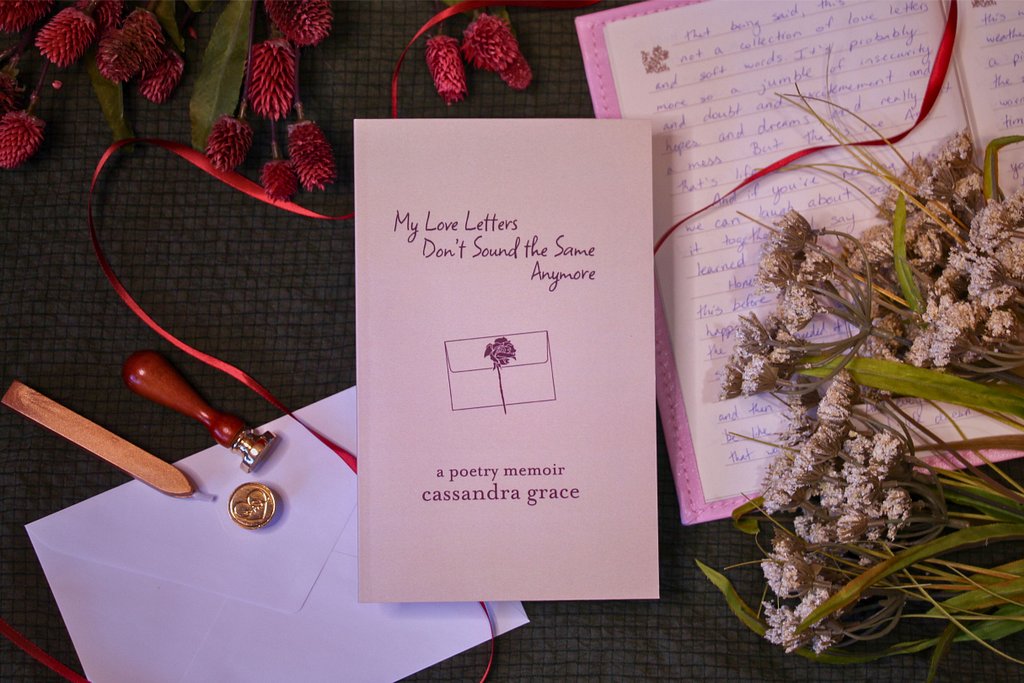 My Love Letters
Don't Sound the Same
Anymore
a poetry memoir
cassandra grace
That being said, this
not a collection of love letters
and soft words. It's probably
more so a jumble of insecurity
and doubt and excitement and
hopes and dreams. And really it
a mess. But that's me. A
that's life
And if you're
we can laugh about
it together say
learned
Hone
this before
happ
the
and then
be like
that
this
weath
a p
wor
tim